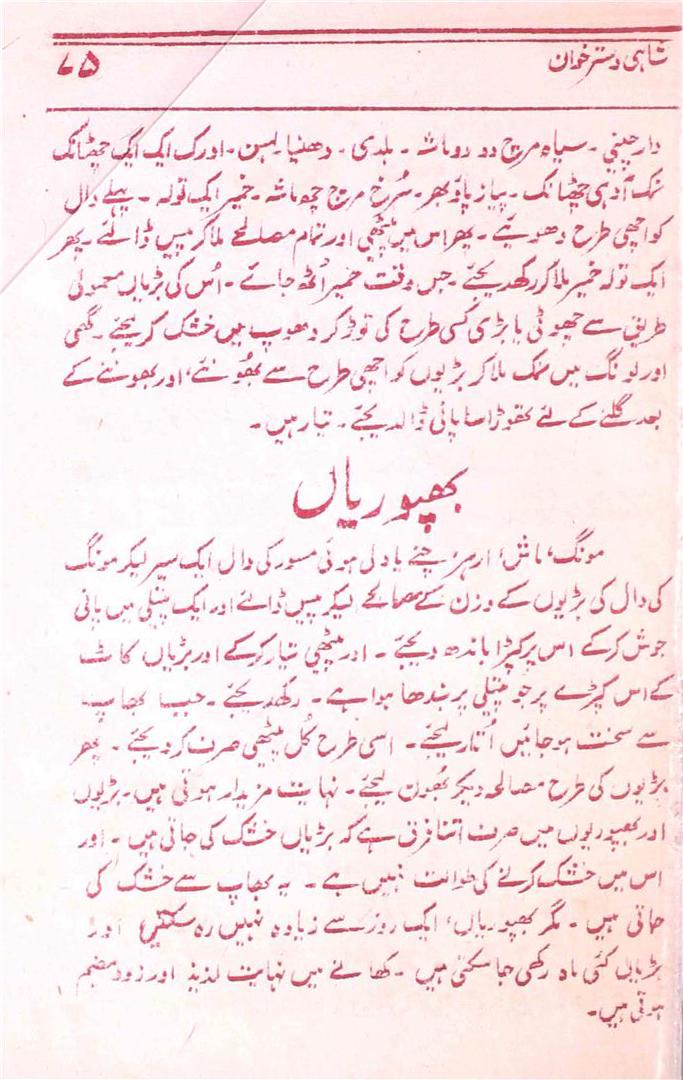 شاہی دسترخوان
۷۵
دارچینی ۔ سیاہ مرچ دو دو ماشہ ۔ ہلدی ۔ دھنیا ۔ لہسن ۔ ادرک ایک ایک چھٹانک
نمک آدہی چھٹانک ۔ پیاز پاؤ بھر ۔ سُرخ مرچ چھ ماشہ ۔ خمیر ایک تولہ ۔ پہلے دال
کو اچھی طرح دھویئے ۔ پھر اس میں پیٹھی اور تمام مصالحے ملا کر پیس ڈالئے ۔ پھر
ایک تولہ خمیر ملا کر رکھدیجئے ۔ جس وقت خمیر اُٹھ جائے ۔ اُس کی بڑیاں معمولی
طریق سے چھوٹی یا بڑی کسی طرح کی توڑ کر دھوپ میں خشک کر لیجئے ۔ گھی
اور لونگ میں نمک ملا کر بڑیوں کو اچھی طرح سے بھُونئے، اور بھوننے کے
بعد گلنے کے لئے تھوڑا سا پانی ڈالدیجئے ۔ تیار ہیں ۔
بھپوریاں
مونگ، ماش، ارہر، چنے یا دلی ہوئی مسور کی دال ایک سیر لیکر مونگ
کی دال کی بڑیوں کے وزن کے مصالحے لیکر پیس ڈالئے اور ایک پتیلی میں پانی
جوش کر کے اس پر کپڑا باندھ دیجئے ۔ اور پیٹھی تیار کر کے اور بڑیاں کاٹ
کے اس کپڑے پر جو پتیلی پر بندھا ہوا ہے ۔ رکھدیجئے ۔ جب بھاپ
سے سخت ہو جائیں اُتار لیجئے ۔ اسی طرح کُل پیٹھی صرف کر دیجئے ۔ پھر
بڑیوں کی طرح مصالحہ دیکر بھُون لیجئے ۔ نہایت مزیدار ہوتی ہیں ۔ بڑیوں
اور بھپوریوں میں صرف اتنا فرق ہے کہ بڑیاں خشک کی جاتی ہیں ۔ اور
اس میں خشک کرنے کی طوالت نہیں ہے ۔ یہ بھاپ سے خشک کی
جاتی ہیں ۔ مگر بھپوریاں، ایک روز سے زیادہ نہیں رہ سکتیں اور
بڑیاں کئی ماہ رکھی جا سکتی ہیں ۔ کھانے میں نہایت لذیذ اور زود ہضم
ہوتی ہیں ۔